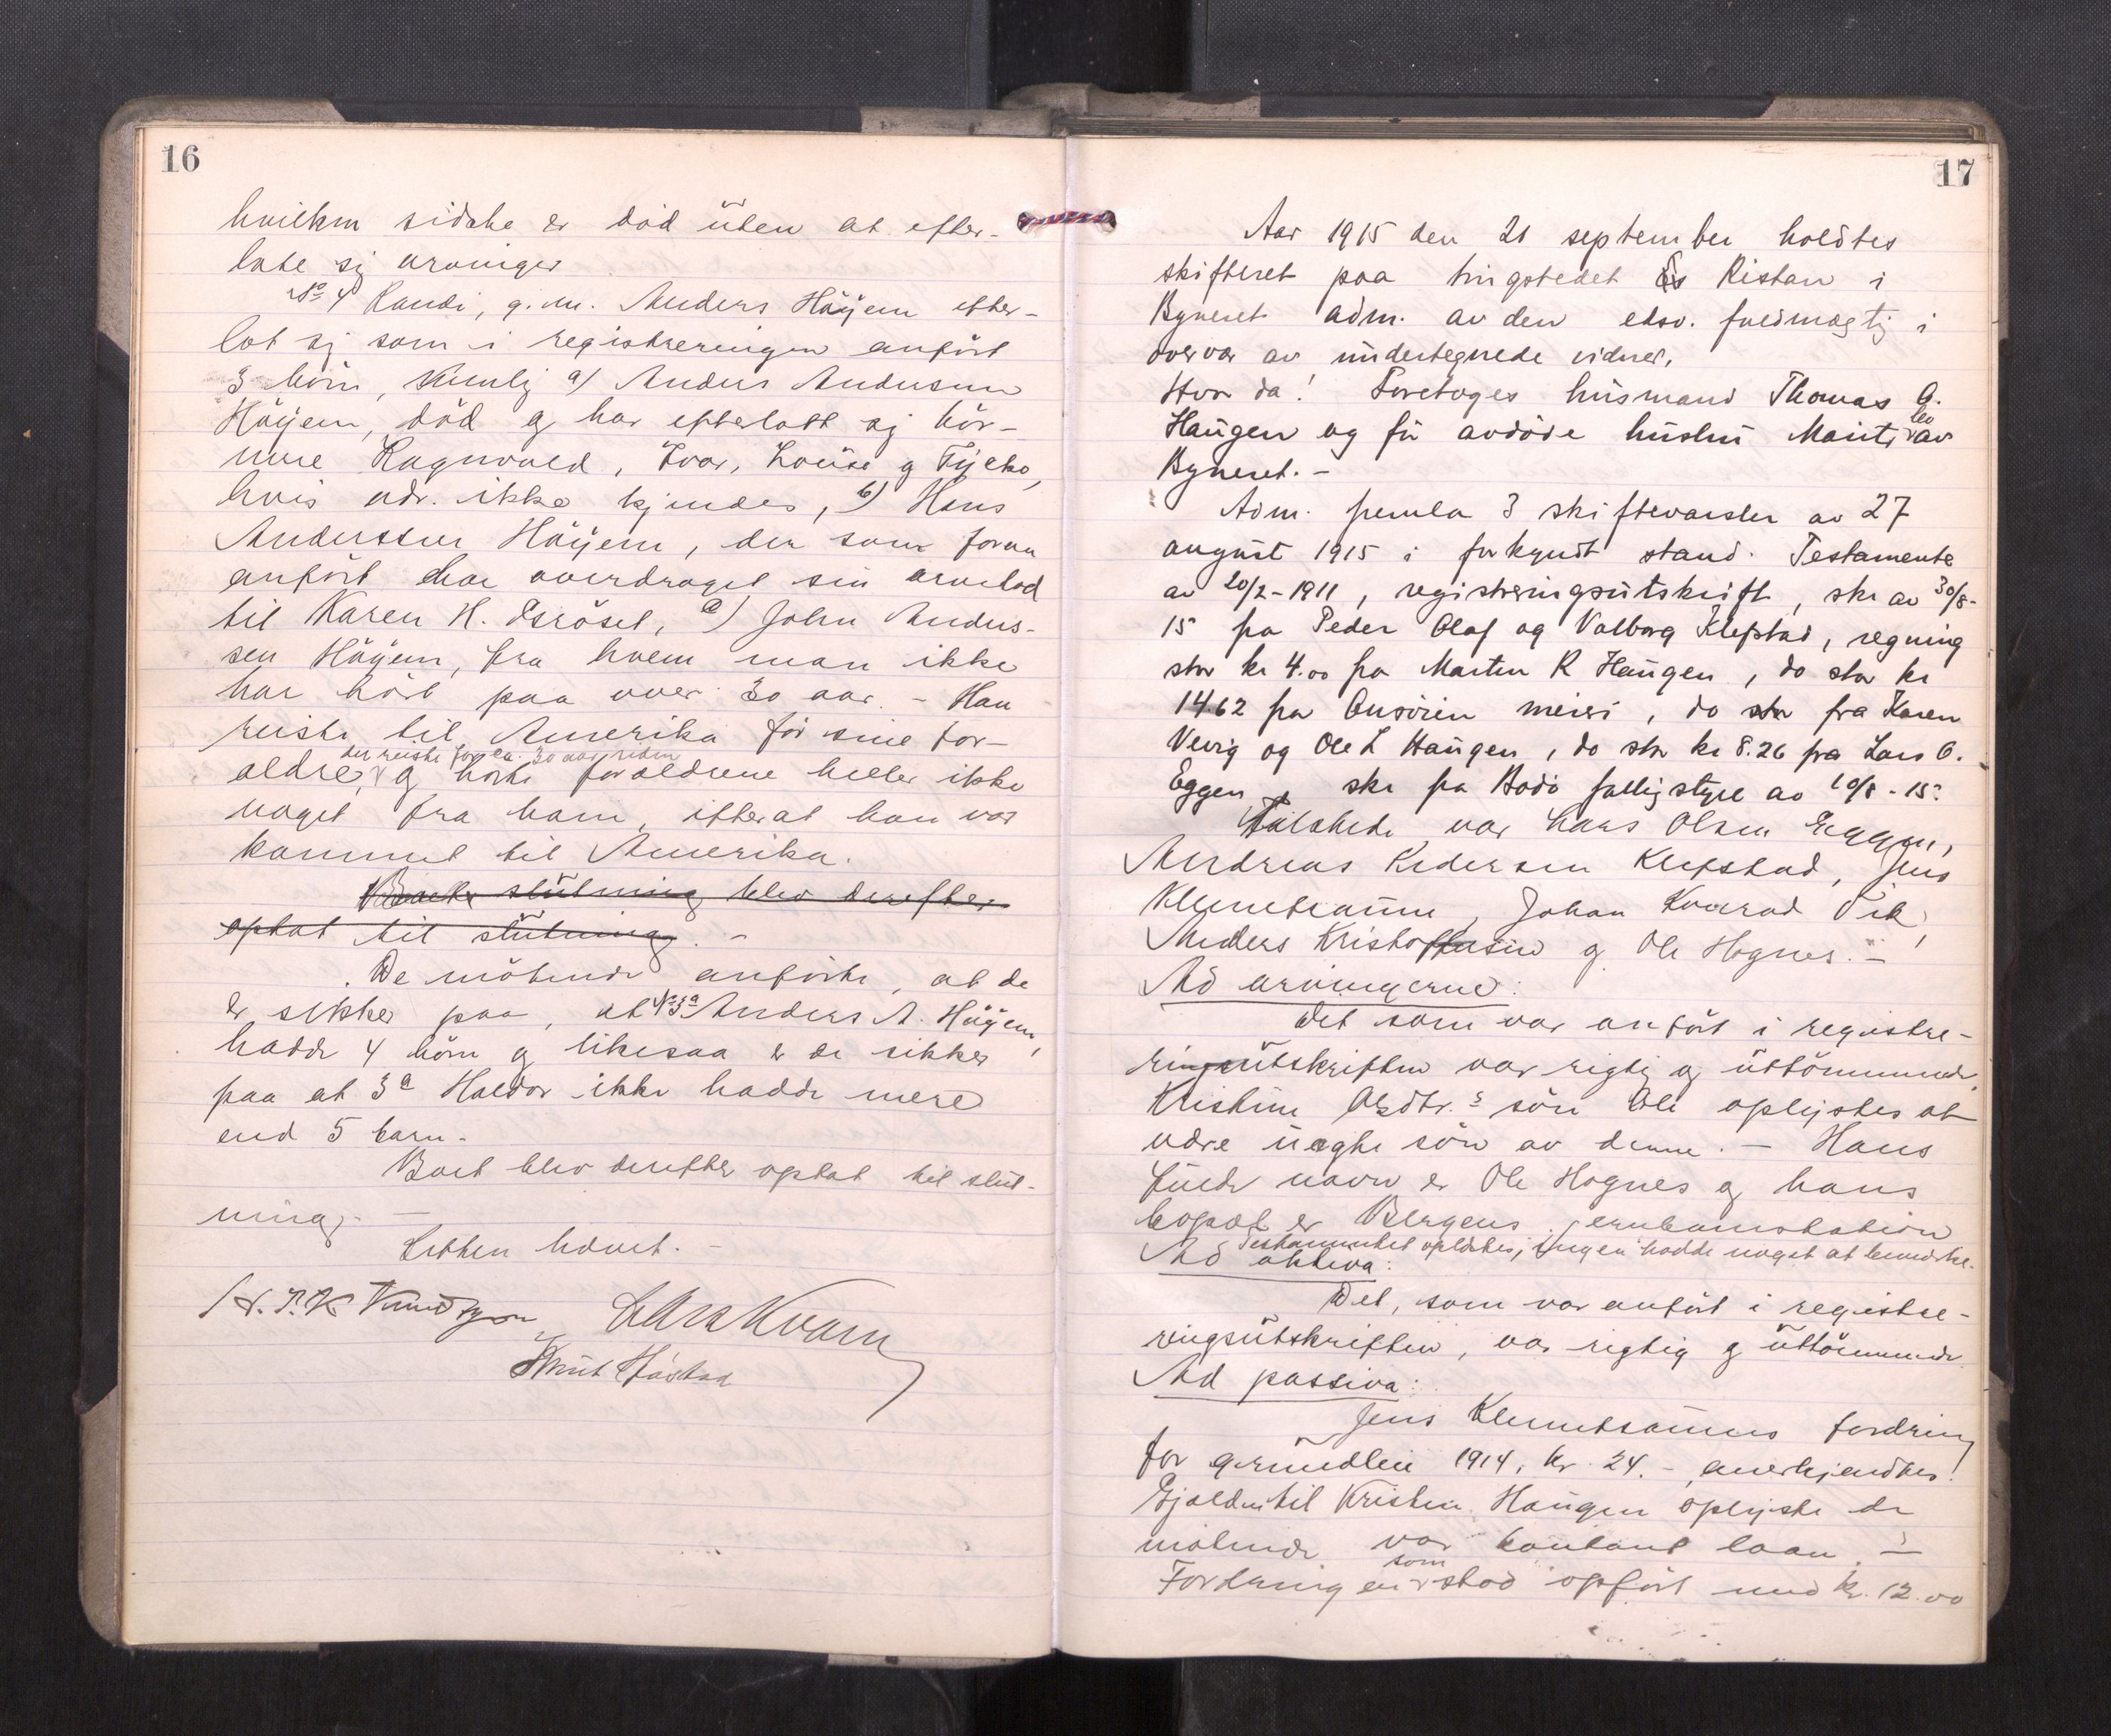 16
hvilken sidste er död uten at efter-
late sig arvinger
No 4 Randi, g. m. Anders Höyem efter-
lot sig som i registreringen anfört
3 börn, nemlig a) Anders Andersen
Höyem, död og har efterlatt sig bör-
nene Ragnvald, Ivar, Louise og Tycko,
hvis adr. ikke kjendes, b) Hans
Anderssen Höyem, der som foran
anfört har overdraget sin arvelod
til Karen H. Esröset, c) John Anders-
sen Höyem, fra hvem man ikke
har hört paa over 30 aar. - Han
reiste til Amerika för sine for-
der reiste for ca. 30 aar siden
ældre, og hörte forældrene heller ikke
noget fra ham, efterat han var
kommet til Amerika.
slutning blev derefter
optat til slutning. -
De mötende anförte, at de
er sikker paa, at No 3a Anders A. Höyem,
hadde 4 börn og likesaa er de sikker
paa at 3a Haldor ikke hadde mere
end 5 barn.
Boet blev derefter optat til slut-
ning. -
Retten hævet. -
H. P. K Knudtzon Lars Kvam
Knut Håstad
17
Aar 1915 den 21 september holdtes
skifteret paa tingstedet Ristan i
Byneset adm. av den edsv. fuldmægtig i
overvær av undertegnede vidner.
Hvor da! Foretoges husmand Thomas O.
Haugen og fö avdöde hustru Marit, bo av
Byneset. -
Adm. fremla 3 skiftevarsler av 27
august 1915 i forkyndt stand. Testamente
av 20/2-1911, registreringsutskrift, skr av 30/8-
15 fra Peder Olaf og Valborg Klefstad, regning
stor kr 4.00 fra Martin R Haugen, do stor kr
14.62 fra Onsöien meieri, do fra Karen
Vevig og Ole L Haugen, do stor kr 8.26 fra Lars O.
Eggen, skr fra Bodö fattigstyre av 10/8-15.
Tilstede var Lars Olsen Eggen,
Andreas Pedersen Klefstad, Jens
Klemetsaune, Johan Konrad
Anders Kristoffersen og Ole Hognes. -
Ad arvingerne:
Det som var anfört i registre-
ringsutskriften var rigtig og uttömmende.
Kristine Olsdtr.s sön Ole oplystes at
være uegte sön av denne. - Hans
fulde navn er Ole Hognes og hans
bopæl er Bergens jernbanestation
Testamentet oplæstes, ingen hadde noget at bemerke.
Ad aktiva:
Det, som var anfört i registre-
ringsutskriften, var rigtig og uttömmende.
Ad passiva:
Jens Klemetsaunes fordring
for grundleie 1914, kr. 24. -, anerkjendtes.
Gjælden til Kristen Haugen oplyste de
mötende var kontant laan. -
som
Fordringen stod opfört med kr. 12.00